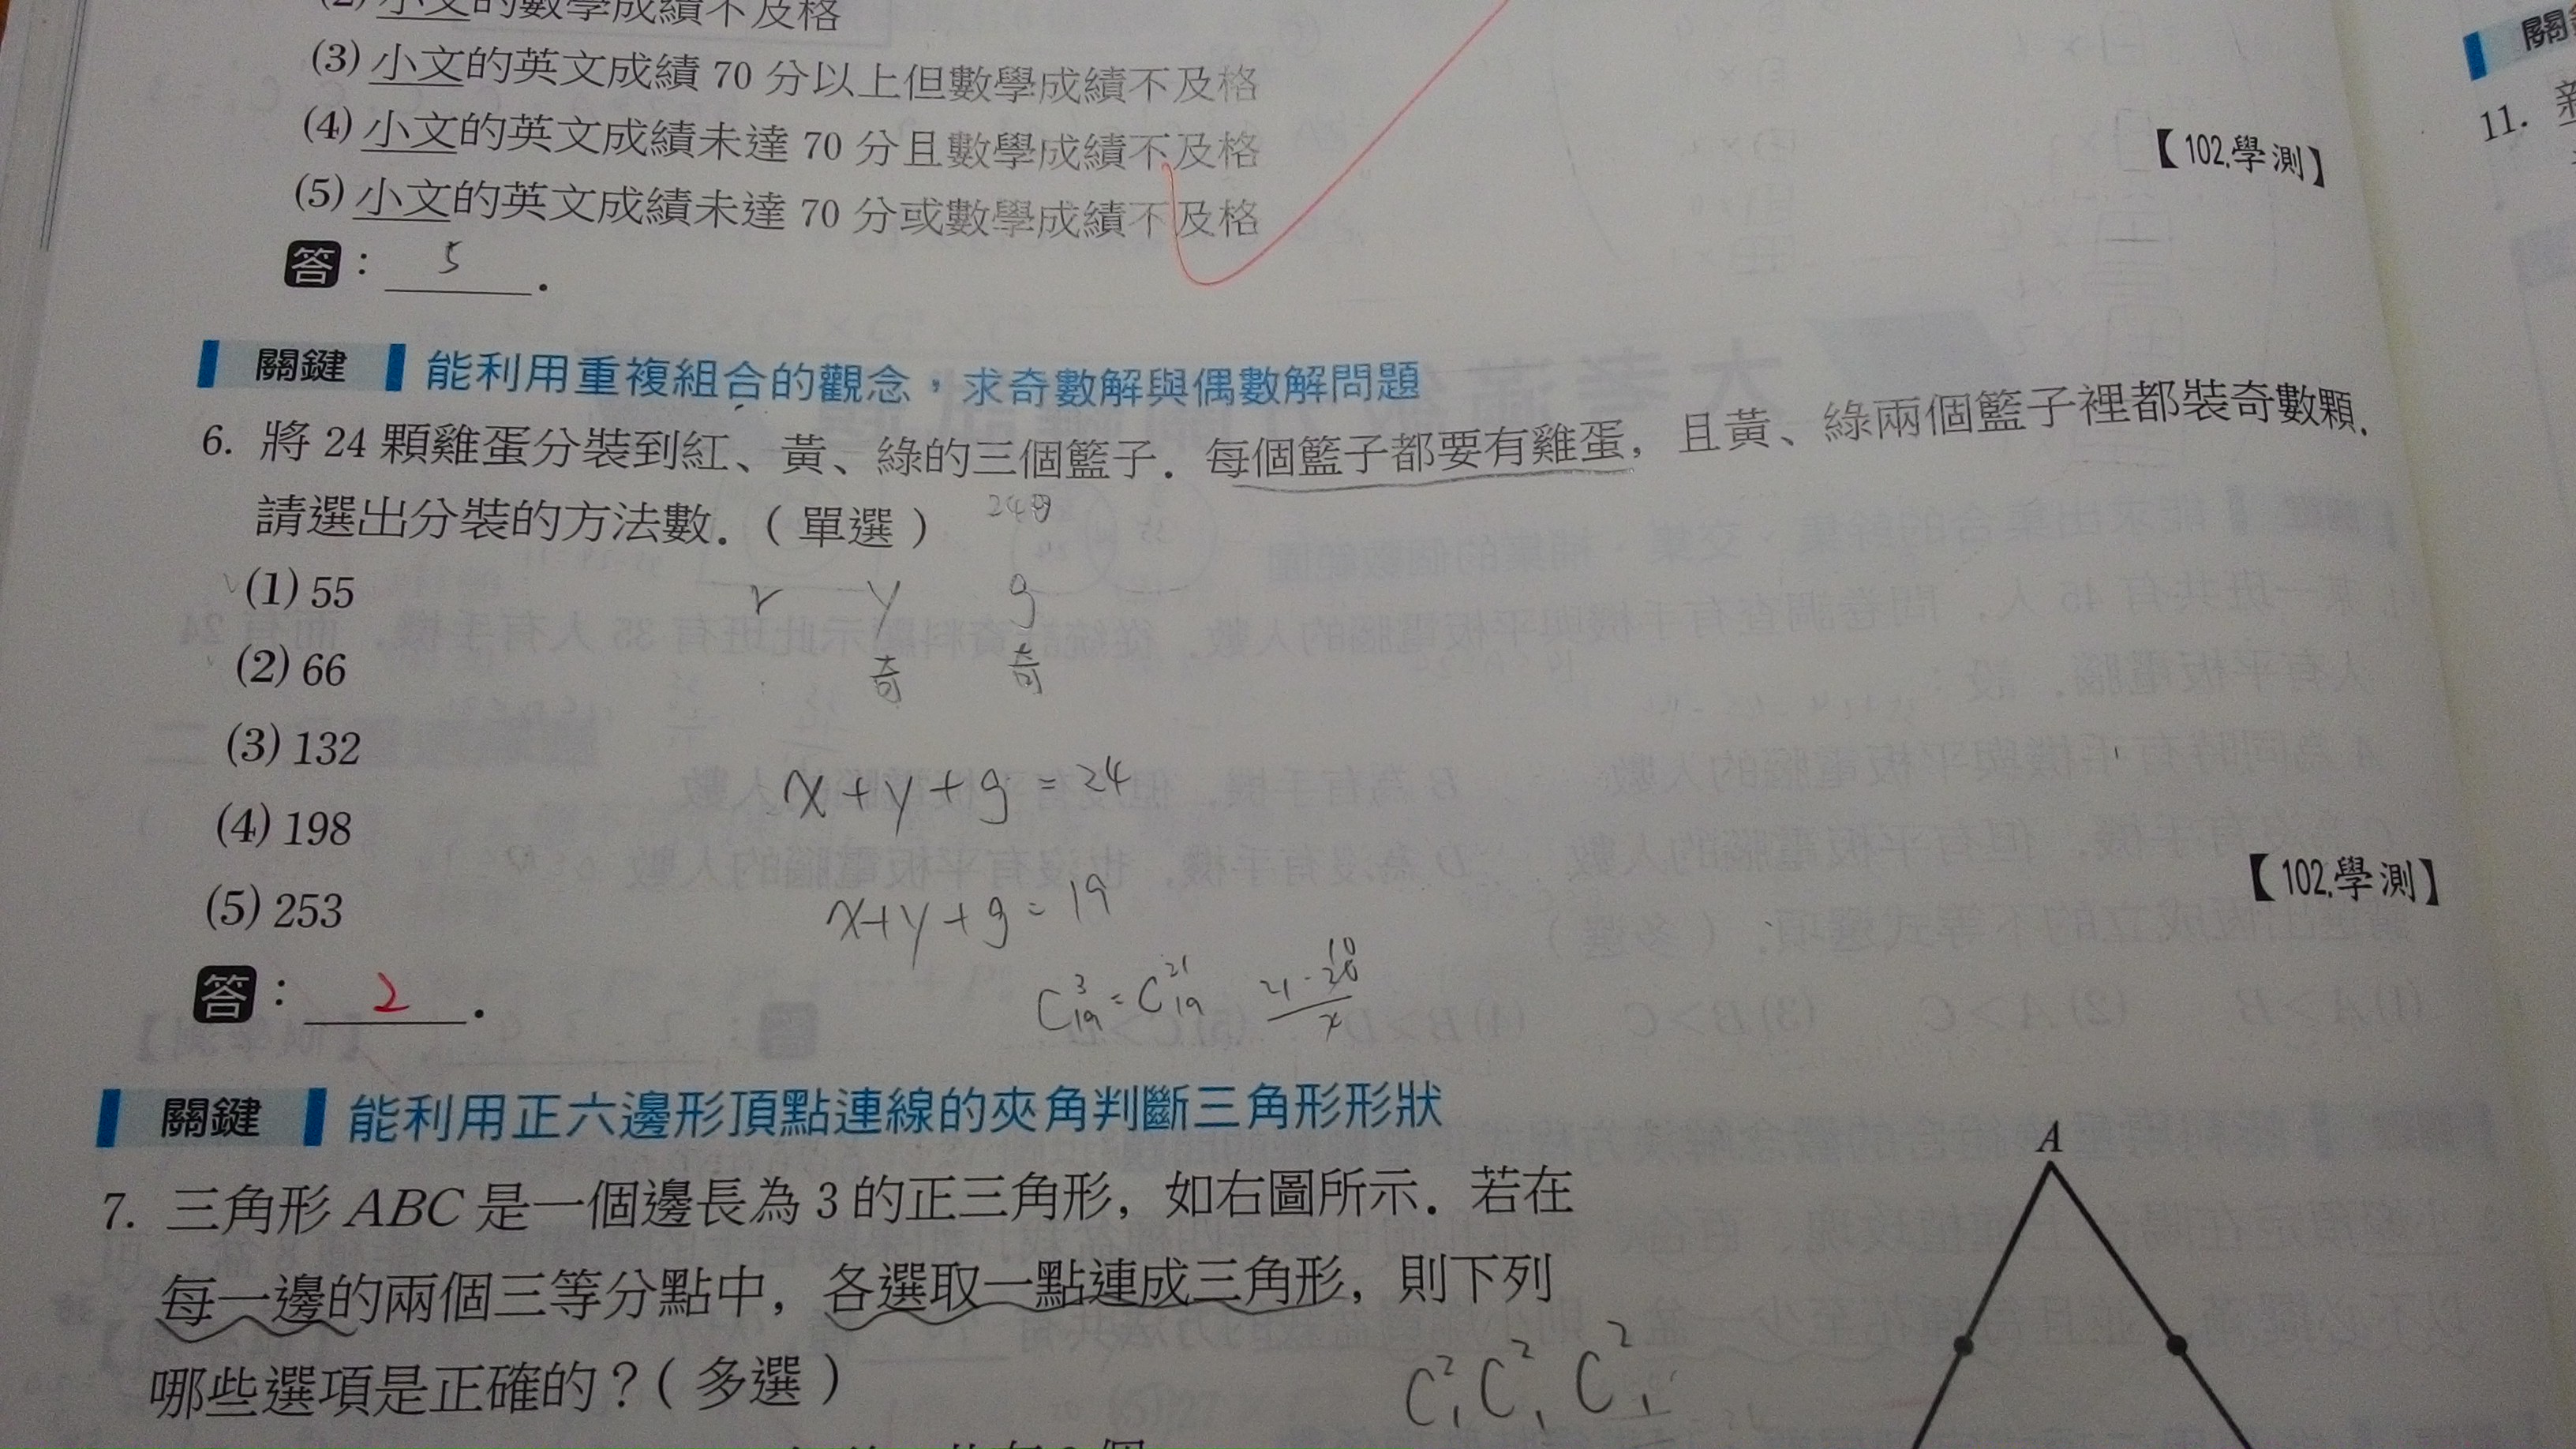 (2) 小文的數學成績不及格
(3) 小文的英文成績 70 分以上但數學成績不及格
(4) 小文的英文成績未達 70 分且數學成績不及格
(5) 小文的英文成績未達 70 分或數學成績不及格
【102.學測】
答：5.
關鍵 能利用重複組合的觀念，求奇數解與偶數解問題
6. 將 24 顆雞蛋分裝到紅、黃、綠的三個籃子．每個籃子都要有雞蛋，且黃、綠兩個籃子裡都裝奇數顆．
請選出分裝的方法數．（單選）
(1) 55
(2) 66
(3) 132
(4) 198
(5) 253
【102.學測】
r y g
奇 奇
x + y + g = 24
x + y + g = 19
答：2.
關鍵 能利用正六邊形頂點連線的夾角判斷三角形形狀
7. 三角形 ABC 是一個邊長為 3 的正三角形，如右圖所示．若在
每一邊的兩個三等分點中，各選取一點連成三角形，則下列
哪些選項是正確的？（多選）
A
關
11.